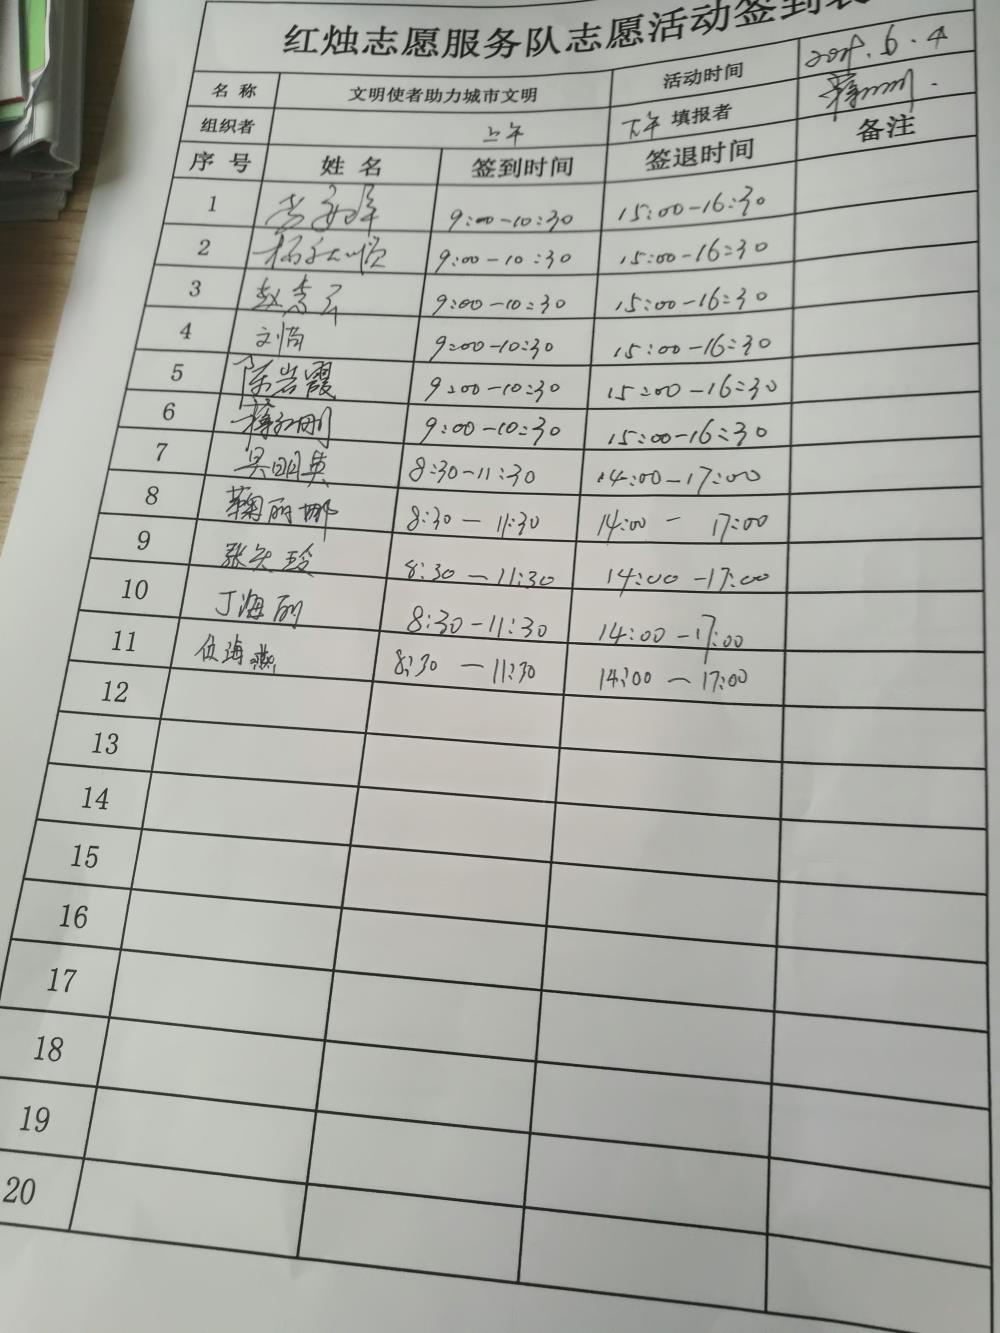 红烛志愿服务队志愿活动签到表
名 称 文明使者助力城市文明 活动时间 6.4
组织者 上午 下午 填报者
序 号 姓 名 签到时间 签退时间 备注
1 9:00-10:30 15:00-16:30
2 9:00-10:30 15:00-16:30
3 赵 9:00-10:30 15:00-16:30
4 9:00-10:30 15:00-16:30
5 陈岩霞 9:00-10:30 15:00-16:30
6 9:00-10:30 15:00-16:30
7 吴明英 8:30-11:30 14:00-17:00
8 鞠丽娜 8:30-11:30 14:00-17:00
9 张 玲 8:30-11:30 14:00-17:00
10 丁海丽 8:30-11:30 14:00-17:00
11 海燕 8:30-11:30 14:00-17:00
12
13
14
15
16
17
18
19
20